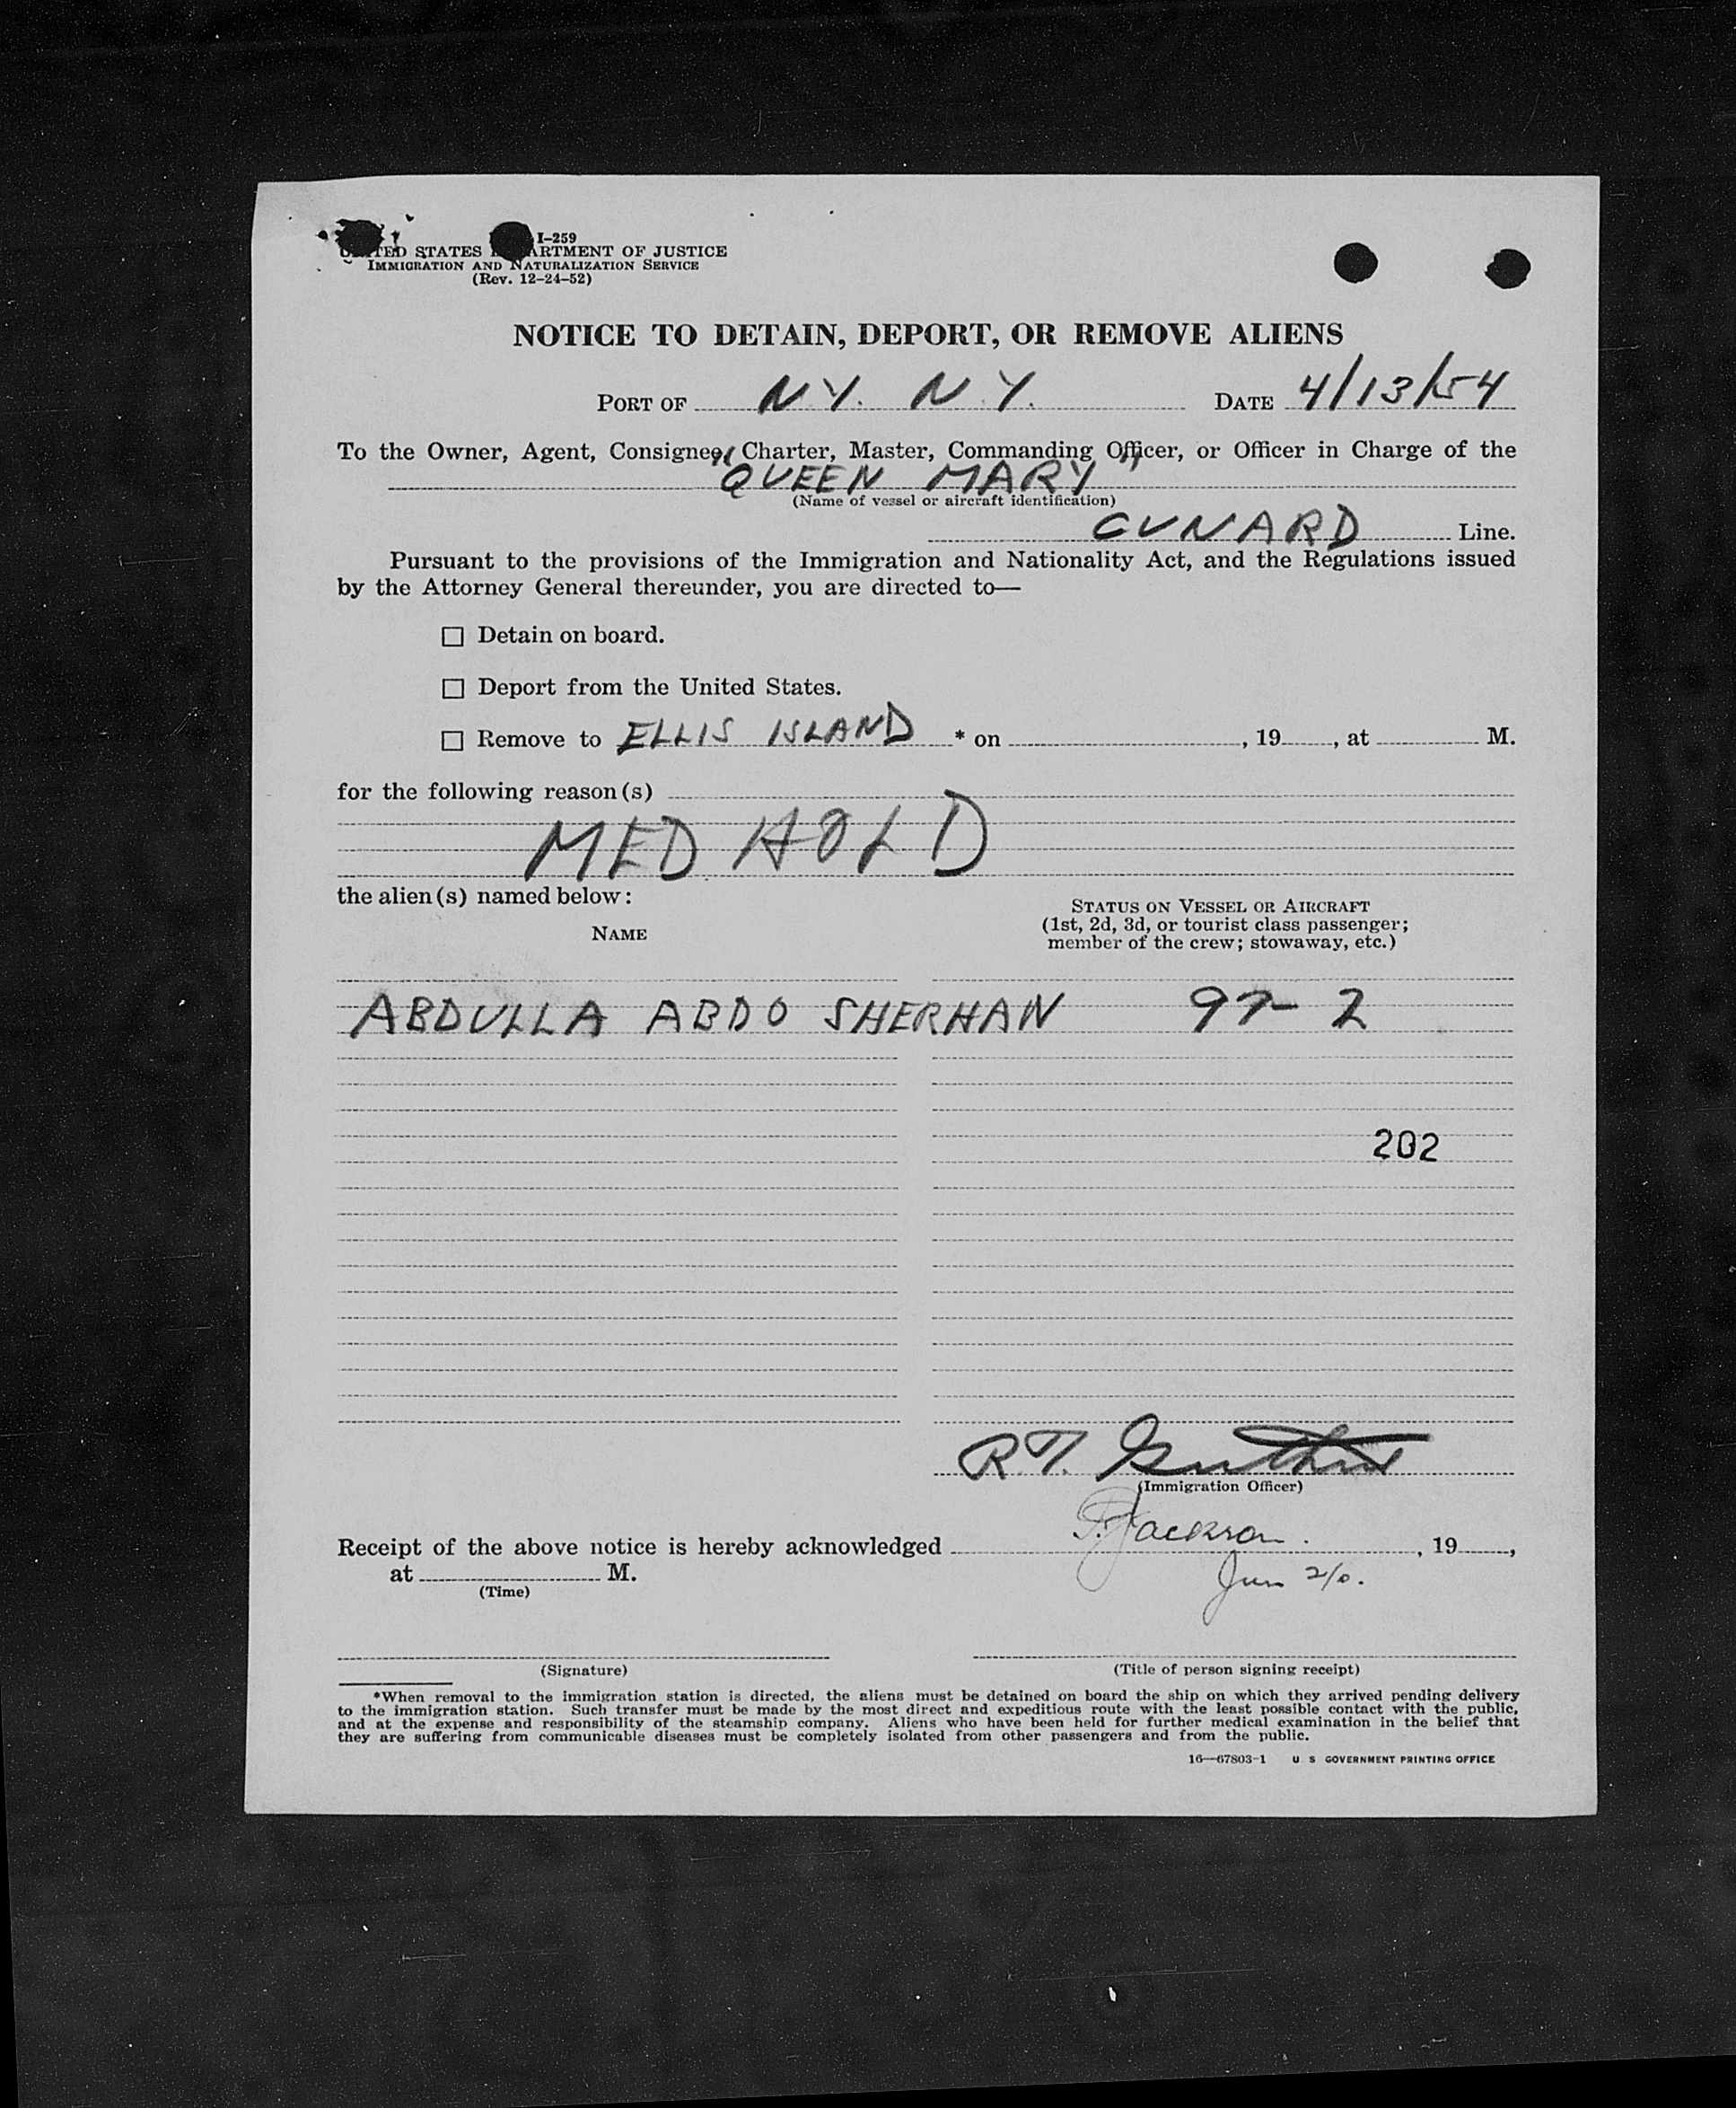 I-259
STATES
DEPARTMENT OF JUSTICE
IMMIGRATION AND NATURALIZATION SERVICE
(Rev. 12-24-52)
NOTICE TO DETAIN, DEPORT, OR REMOVE ALIENS
PORT OF N.Y. N.Y. DATE 4/13/54
To the Owner, Agent, Consignee, Charter, Master, Commanding Officer, or Officer in Charge of the
"QUEEN MARY"
(Name of vessel or aircraft identification)
CUNARD Line.
Pursuant to the provisions of the Immigration and Nationality Act, and the Regulations issued
by the Attorney General thereunder, you are directed to—
☐ Detain on board.
☐ Deport from the United States.
☐ Remove to ELLIS ISLAND * on , 19 , at M.
for the following reason(s)
MED HOLD
the alien(s) named below:
NAME
STATUS ON VESSEL OR AIRCRAFT
(1st, 2d, 3d, or tourist class passenger;
member of the crew; stowaway, etc.)
ABDULLA ABDO SHERHAN 97-2
202
R.T.
(Immigration Officer)
Jackson.
Receipt of the above notice is hereby acknowledged , 19 ,
at M.
(Time)
(Signature)
(Title of person signing receipt)
*When removal to the immigration station is directed, the aliens must be detained on board the ship on which they arrived pending delivery
to the immigration station. Such transfer must be made by the most direct and expeditious route with the least possible contact with the public,
and at the expense and responsibility of the steamship company. Aliens who have been held for further medical examination in the belief that
they are suffering from communicable diseases must be completely isolated from other passengers and from the public.
16—67803-1 U S GOVERNMENT PRINTING OFFICE